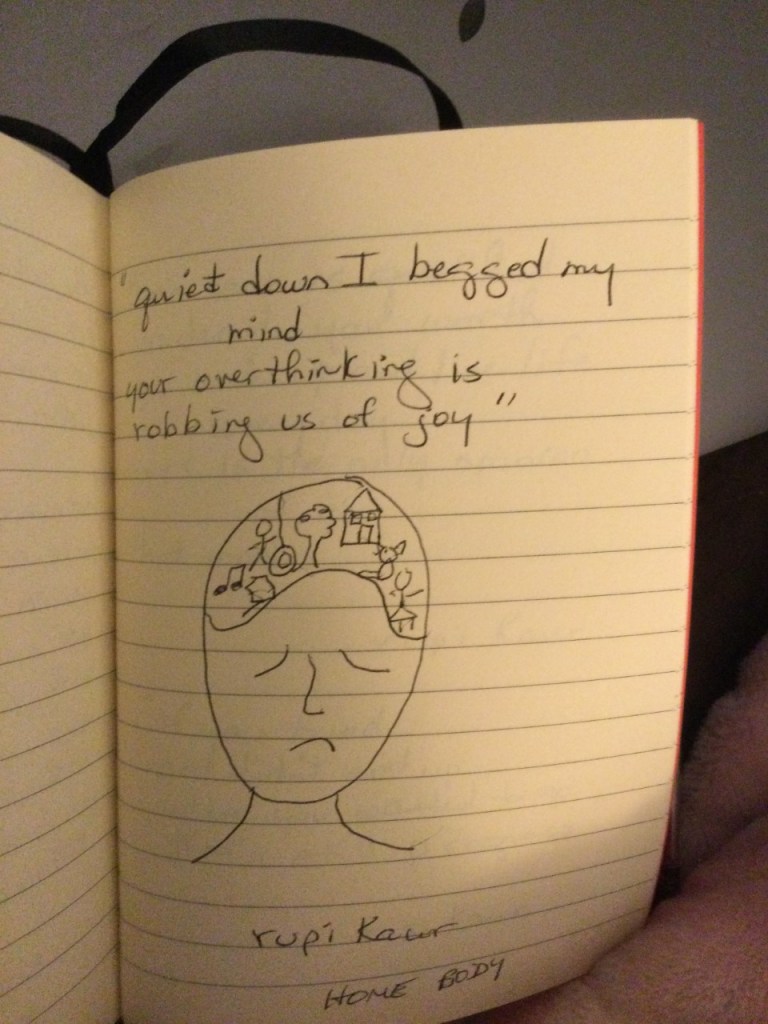 "quiet down I begged my
mind
your overthinking is
robbing us of joy"
rupi kaur
HOME BODY